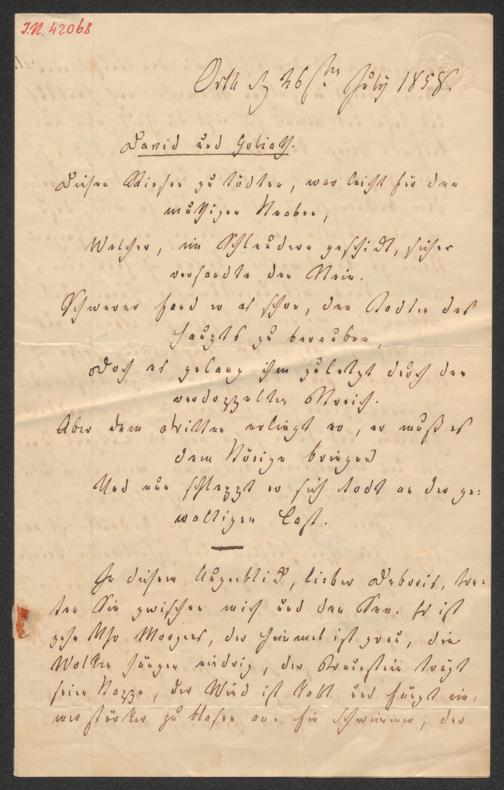 J.N. 42068
Orth d 26sten July 1858.
David und Goliath.
Diesen Riesen zu tödten, war leicht für den
muthigen Knaben,
Welcher, im Schleudern geschickt, sicher
versandte den Stein.
Schwerer fand er es schon, den Todten des
Haupts zu berauben,
Doch es gelang ihm zuletzt durch den
verdoppelten Streich.
Aber dem dritten erliegt er, er muß es
dem Könige bringen
Und nun schleppt er sich todt an der ge-
waltigen Last.
In diesem Augenblick, lieber Debrois, tre-
ten Sie zwischen mich und den See. Es ist
zehn Uhr Morgens, der Himmel ist grau, die
Wolken hängen niedrig, der Traunstein trägt
seine Kappe, der Wind ist kalt und fängt im-
mer stärker zu blasen an. Ein Schwimmer, der